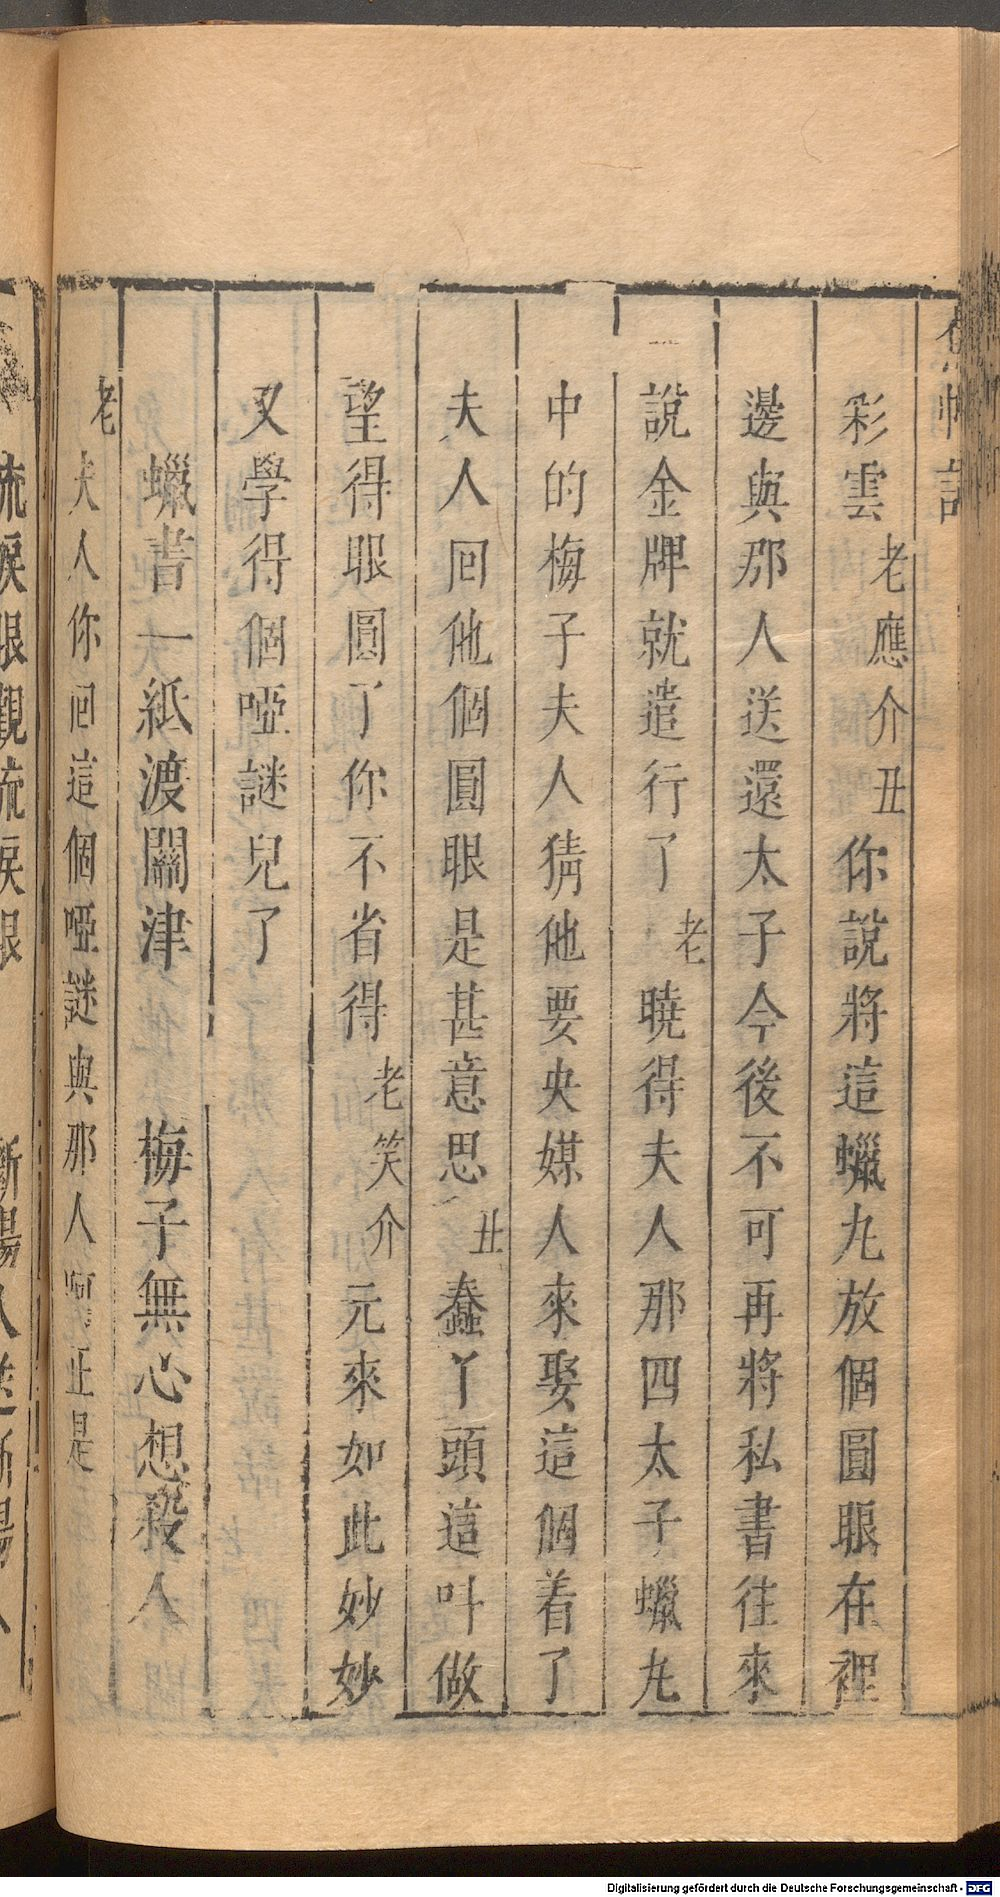 彩雲老應介丑你說將這蠟丸放個圓眼在裡
邊與那人送還太子今後不可再將私書往來
說金牌就遣行了老曉得夫人那四太子蠟丸
中的梅子夫人猜他要央媒人來娶這個着了
夫人回他個圓眼是甚意思丑蠢丫頭這叫做
望得眼圓了你不省得老笑介元來如此妙妙
又學得個啞謎兒了
蠟書一紙渡關津 梅子無心想殺人
老夫人你回這個啞謎與那人呵正是
流淚眼觀流淚眼 斷腸人送斷腸人
Digitalisierung gefördert durch die Deutsche Forschungsgemeinschaft - DFG